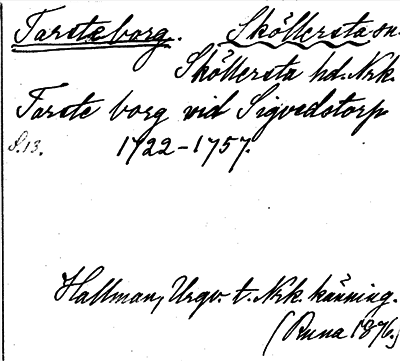 Tarsteborg. Sköllersta sn.
Sköllersta hd. Nrk.
Tarste borg vid Sigvedstorp
S.13. 1722-1757.
Hallman, Urgv t. Nrk. känning.
(Runa 1876.)